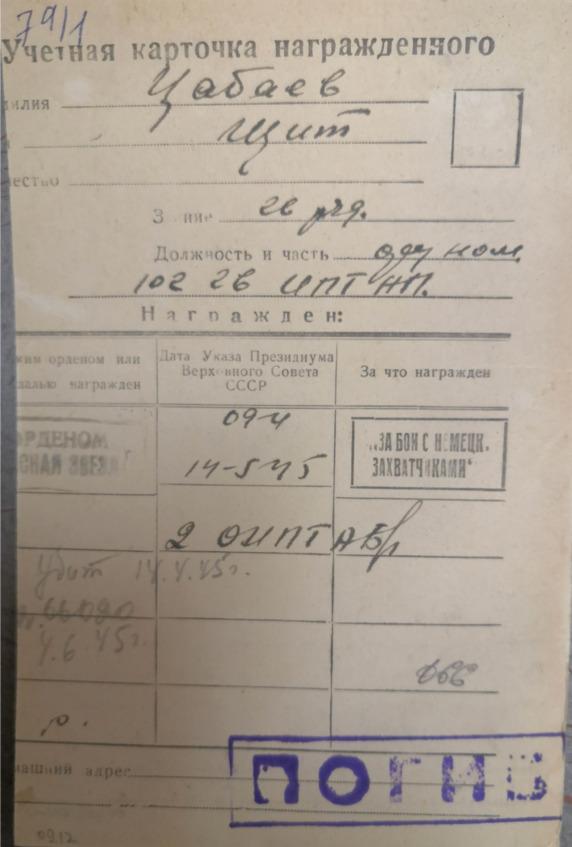 79/1
Учетная карточка награжденного
милия Цабаев
Шит
ество
Звание гв ряд.
Должность и часть
102 гв ИПТАП.
Награжден:
ким орденом или
далью награжден
Дата Указа Президиума
Верховного Совета
СССР
За что награжден
ОРДЕНОМ
СНАЯ ЗВЕЗДА"
094
14-5-45
„ЗА БОИ С НЕМЕЦК.
ЗАХВАТЧИКАМИ"
2 ОИПТАБр
Убит 14.4.45г.
4.6.45г.
р.
машний адрес
ПОГИБ
0912